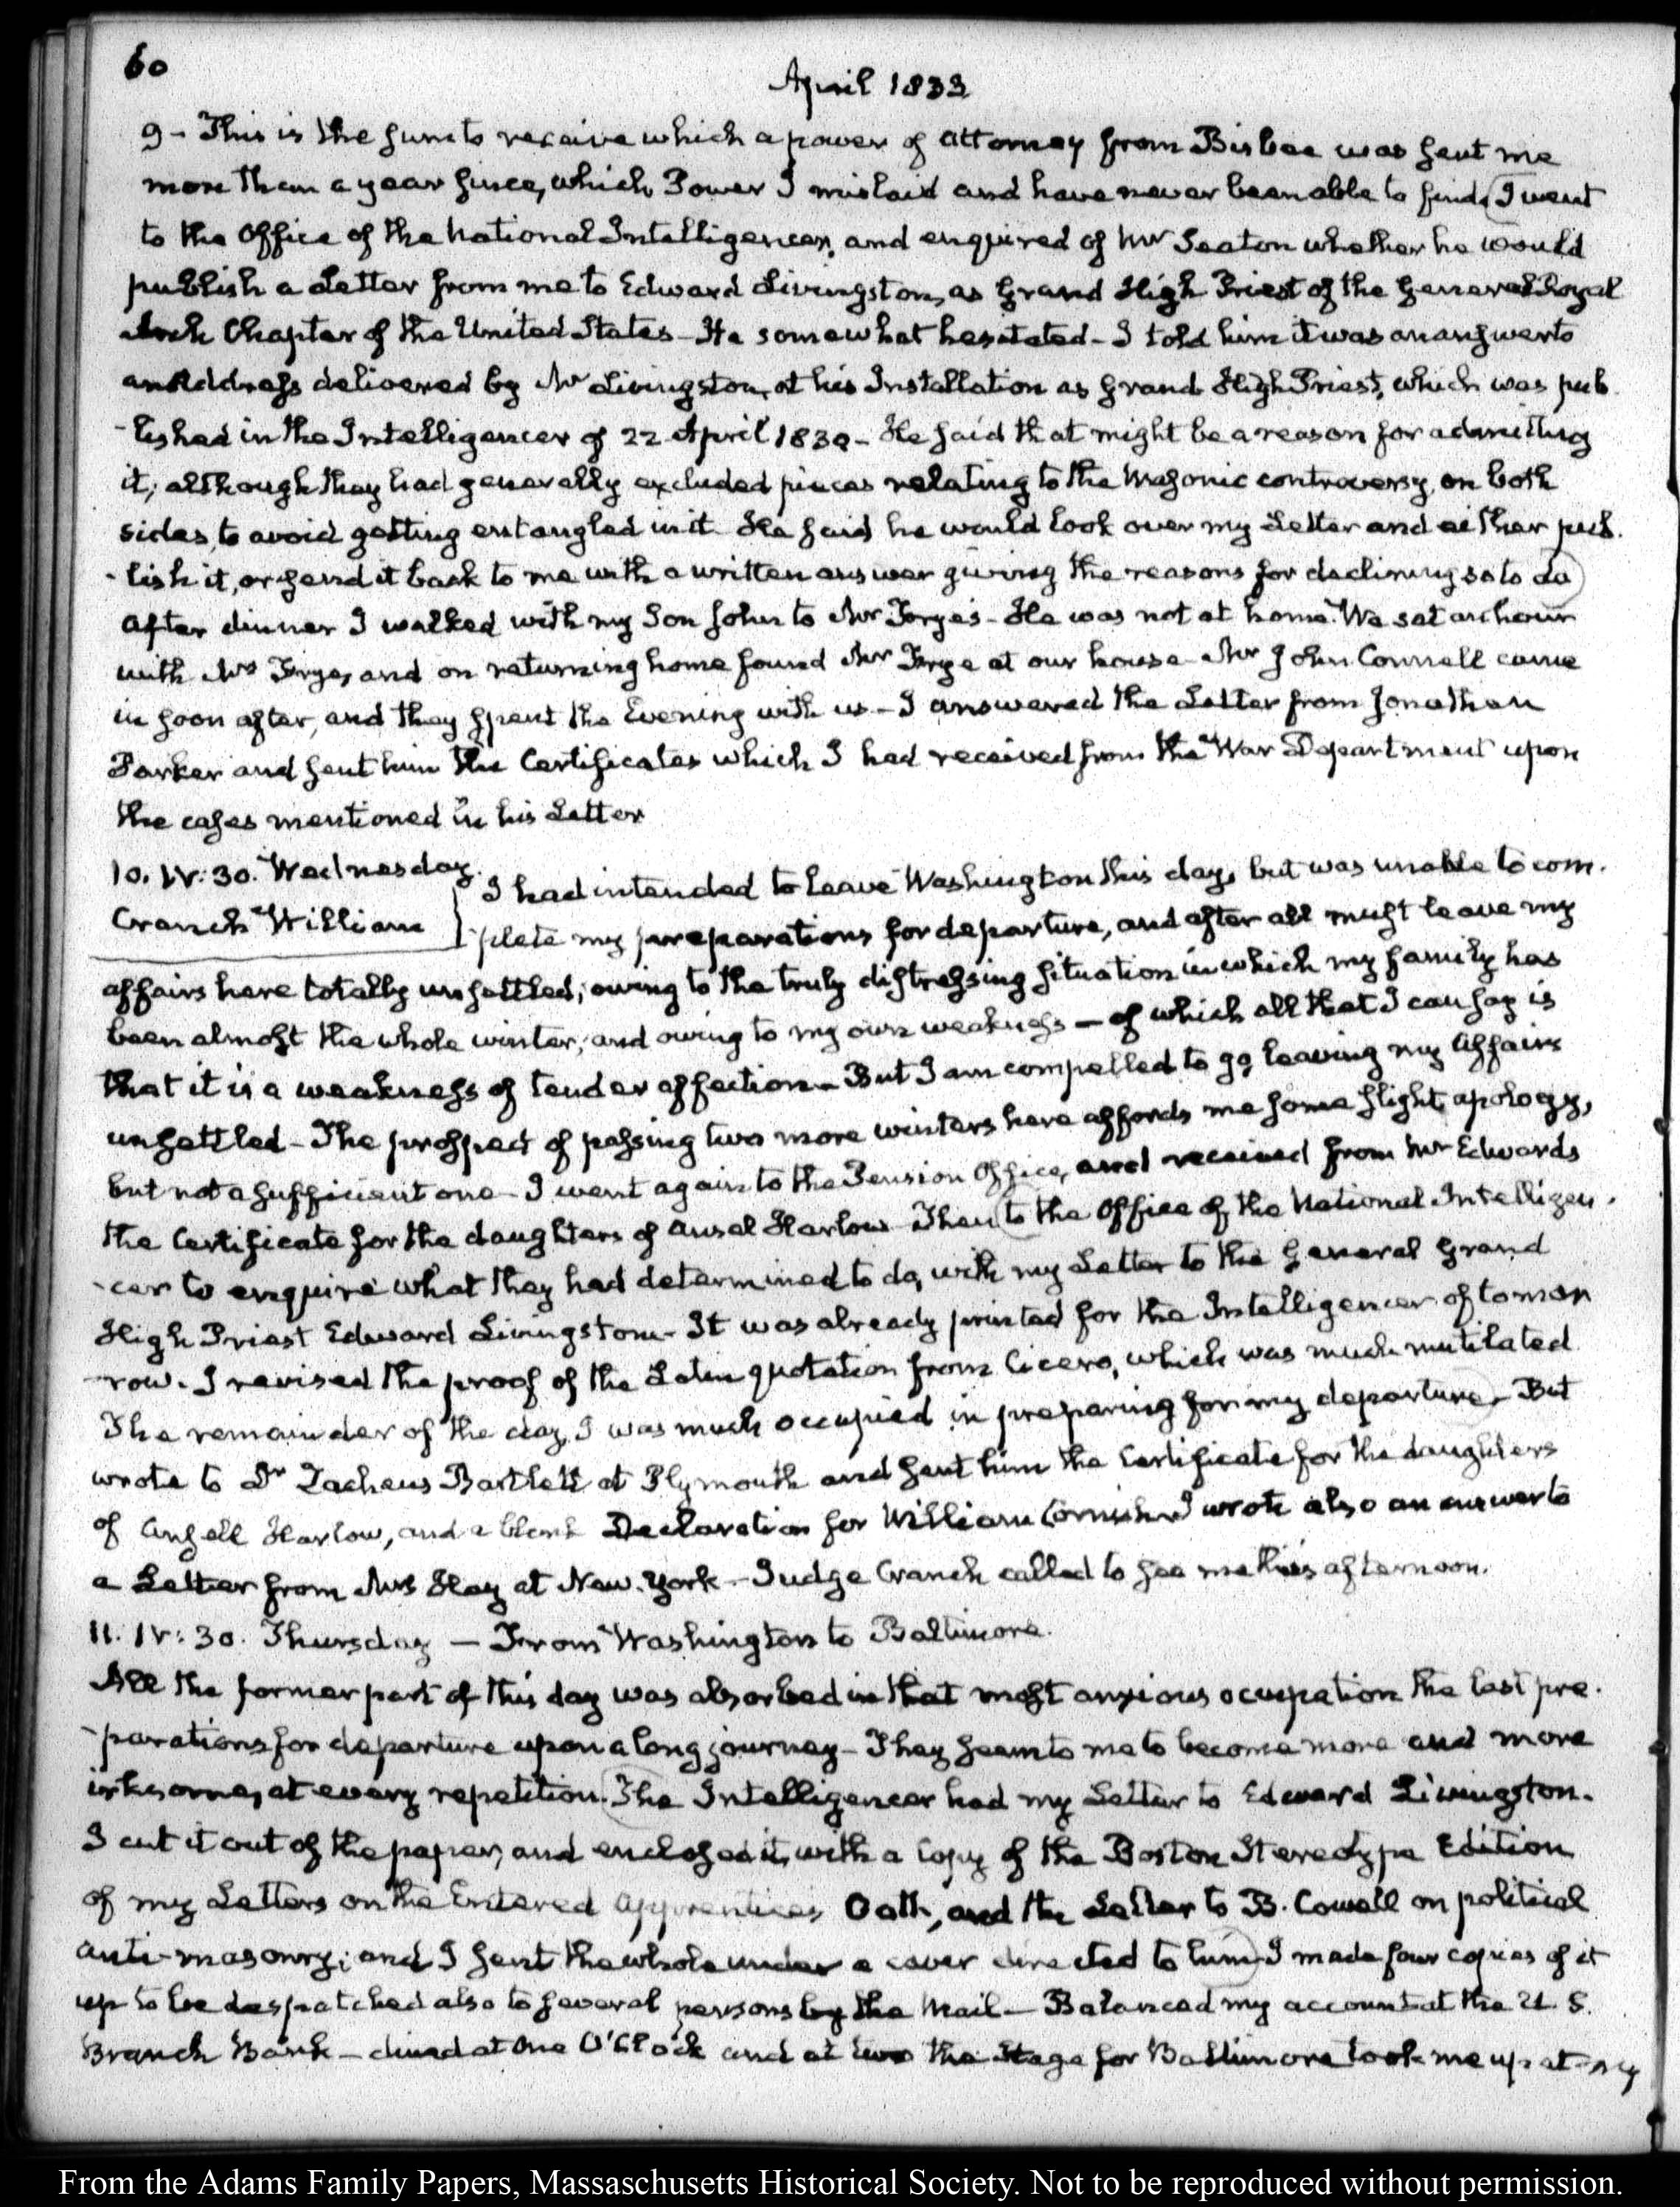 60
April 1833
9 - This is the sum to receive which a power of attorney from Bisbee was sent me
more than a year since, which Power I mislaid and have never been able to find. I went
to the Office of the National Intelligencer, and enquired of Mr Seaton whether he would
publish a Letter from me to Edward Livingston, as Grand High Priest of the General Royal
Arch Chapter of the United States - He somewhat hesitated - I told him it was an answer to
an Address delivered by Mr Livingston, at his Installation as Grand High Priest, which was pub
-lished in the Intelligencer of 22 April 1830 - He said that might be a reason for admitting
it, although they had generally excluded pieces relating to the Masonic controversy, on both
sides, to avoid getting entangled in it. He said he would look over my Letter and either pub-
-lish it, or send it back to me with a written answer giving the reasons for declining so to do
After dinner I walked with my Son John to Mr Frye's - He was not at home. We sat an hour
with Mrs Frye, and on returning home found Mr Frye at our house - Mr John Connell came
in soon after, and they spent the Evening with us - I answered the Letter from Jonathan
Parker and sent him the Certificates which I had received from the War Department upon
the cases mentioned in his Letter
10. IV:30. Wednesday.
Cranch William
I had intended to leave Washington this day, but was unable to com-
-plete my preparations for departure, and after all must leave my
affairs here totally unsettled; owing to the truly distressing situation in which my family has
been almost the whole winter; and owing to my own weakness - of which all that I can say is
that it is a weakness of tender affection - But I am compelled to go, leaving my Affairs
unsettled - The prospect of passing two more winters here affords me some slight apology,
but not a sufficient one - I went again to the Pension Office, and received from Mr Edwards
the Certificate for the daughters of Ansel Harlow - Then to the Office of the National Intelligen-
-cer to enquire what they had determined to do, with my Letter to the General Grand
High Priest Edward Livingston - It was already printed for the Intelligencer of tomor
-row. I revised the proof of the Latin quotation from Cicero, which was much mutilated
The remainder of the day, I was much occupied in preparing for my departure. But
wrote to Dr Zacheus Bartlett at Plymouth and sent him the Certificate for the daughters
of Ansell Harlow, and a blank Declaration for William Cornish. I wrote also an answer to
a Letter from Mrs Hay at New-York - Judge Cranch called to see me this afternoon.
11. IV:30. Thursday - From Washington to Baltimore.
All the former part of this day was absorbed in that most anxious occupation the last pre-
-parations for departure upon a long journey - They seem to me to become more and more
irksome, at every repetition. The Intelligencer had my Letter to Edward Livingston.
I cut it out of the paper, and enclosed it, with a Copy of the Boston Stereotype Edition
of my Letters on the Entered Apprentices Oath, and the Letter to B. Cowell on political
anti-masonry; and I sent the whole under a cover directed to him. I made four copies of it
up to be despatched also to several persons by the Mail - Balanced my account at the U. S.
Branch Bank - dined at One O'Clock and at two the Stage for Baltimore took me up at my
From the Adams Family Papers, Massachusetts Historical Society. Not to be reproduced without permission.